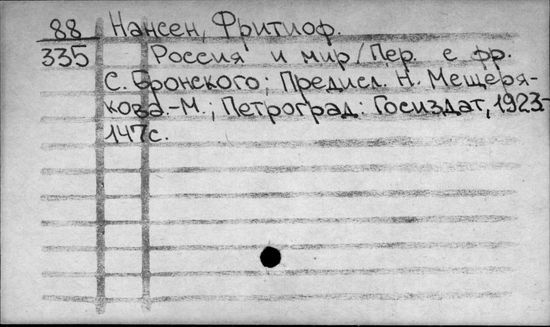 88 Нансен, Фритиоф.
335 Россия и мир / Пер. с фр.
С. Бронского; Предисл. Н. Мещеря-
кова.-М.; Петроград: Госиздат, 1923-
147с.